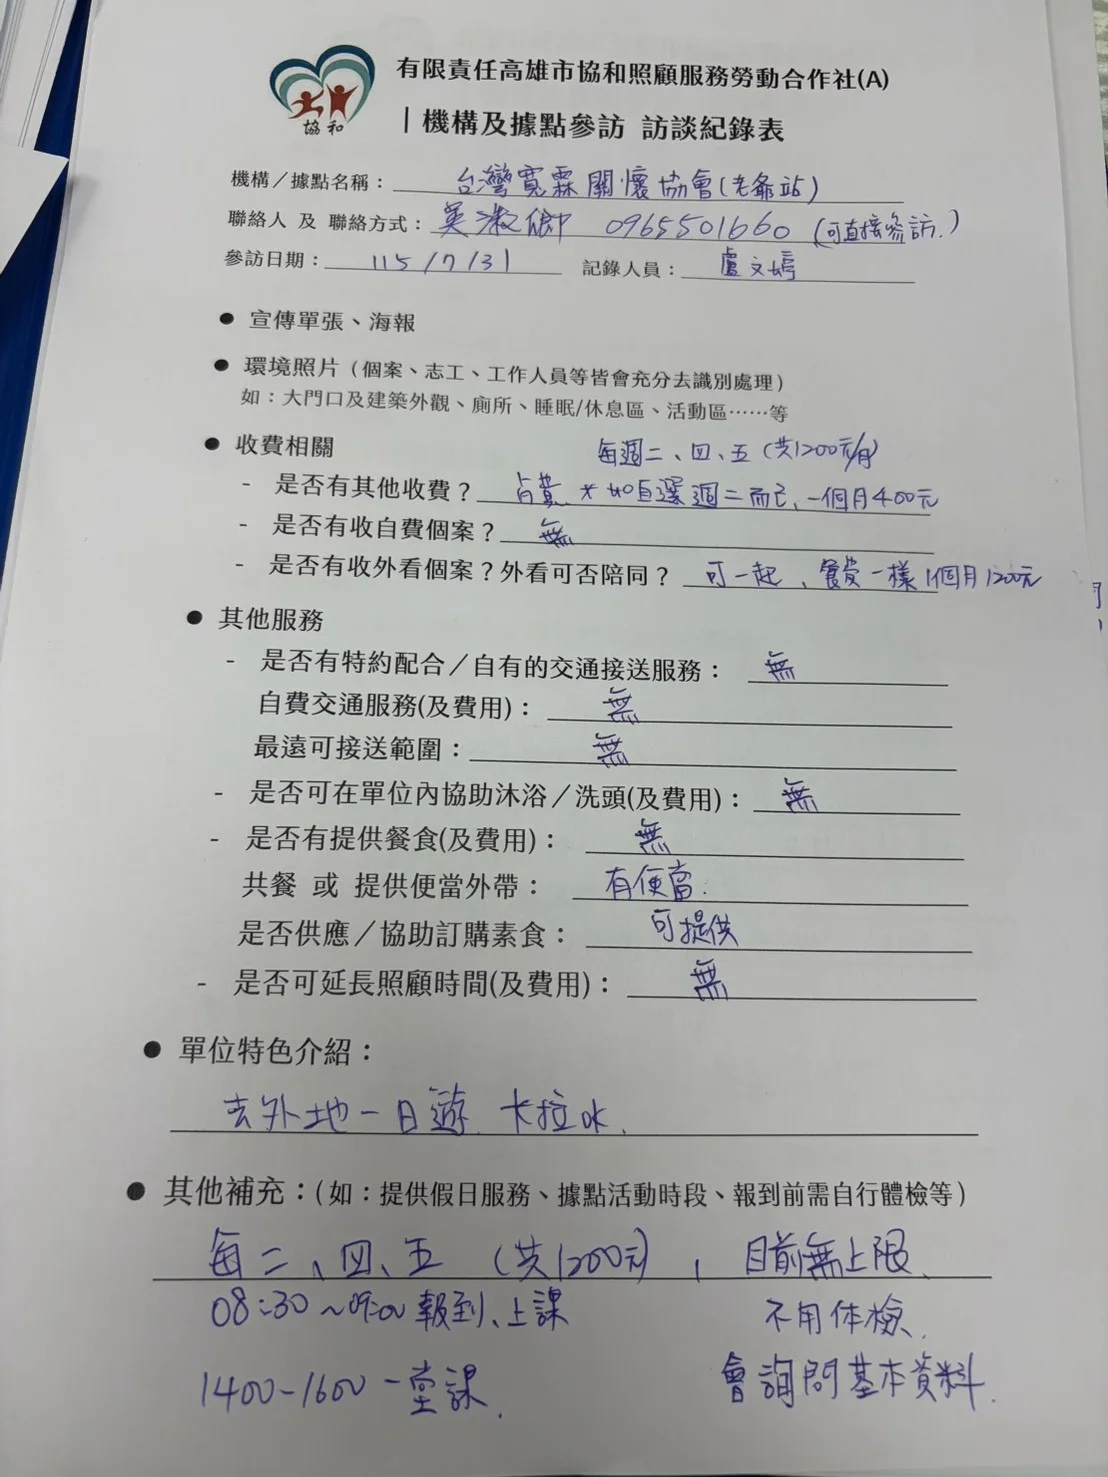 協和
有限責任高雄市協和照顧服務勞動合作社(A)
|機構及據點參訪 訪談紀錄表
機構/據點名稱：台灣寬霖關懷協會(老爺站)
聯絡人 及 聯絡方式：吳淑 0965501660 (可直接參訪.)
參訪日期：115/7/31 記錄人員：盧文婷
● 宣傳單張、海報
● 環境照片（個案、志工、工作人員等皆會充分去識別處理）
如：大門口及建築外觀、廁所、睡眠/休息區、活動區⋯⋯等
● 收費相關 每週二、四、五 (共1200元/月)
- 是否有其他收費？ * 如自選週二而已、一個月400元
- 是否有收自費個案？無
- 是否有收外看個案？外看可否陪同？ 可一起、餐費一樣1個月1200元
● 其他服務
- 是否有特約配合／自有的交通接送服務：無
自費交通服務(及費用)：無
最遠可接送範圍：無
- 是否可在單位內協助沐浴／洗頭(及費用)：無
- 是否有提供餐食(及費用)：無
共餐 或 提供便當外帶：有便當.
是否供應／協助訂購素食：可提供
- 是否可延長照顧時間(及費用)：無
● 單位特色介紹：
去外地一日遊. 卡拉ok.
● 其他補充：(如：提供假日服務、據點活動時段、報到前需自行體檢等)
每二、四、五 (共1200元)、目前無上限.
08:30~09:00報到、上課 不用体檢.
1400-1600一堂課. 會詢問基本資料.